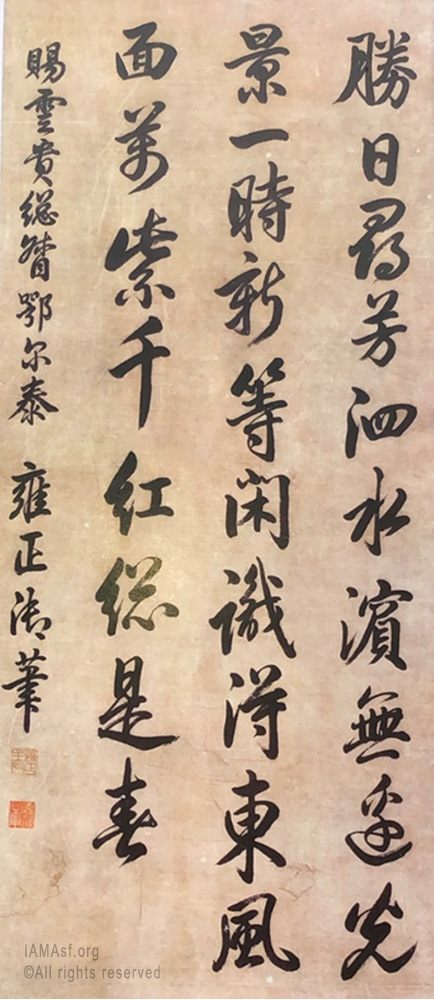 勝日尋芳泗水濱無邊光
景一時新等閑識得東風
面萬紫千红總是春
賜雲貴總督鄂尔泰 雍正御筆
IAMAsf.org
©All rights reserved